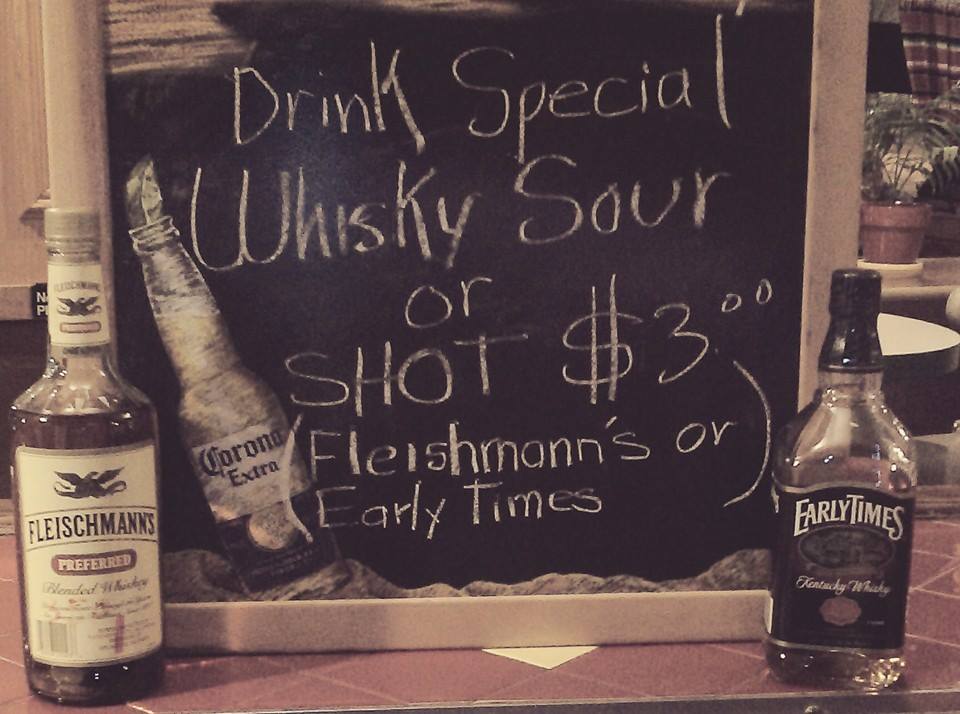 Drink Special
Whisky Sour
or
SHOT $3.00
(Fleishmann's or
Early Times)
Corona
Extra
FLEISCHMANN'S
FLEISCHMANN'S
PREFERRED
Blended Whiskey
EARLY TIMES
Kentucky Whisky